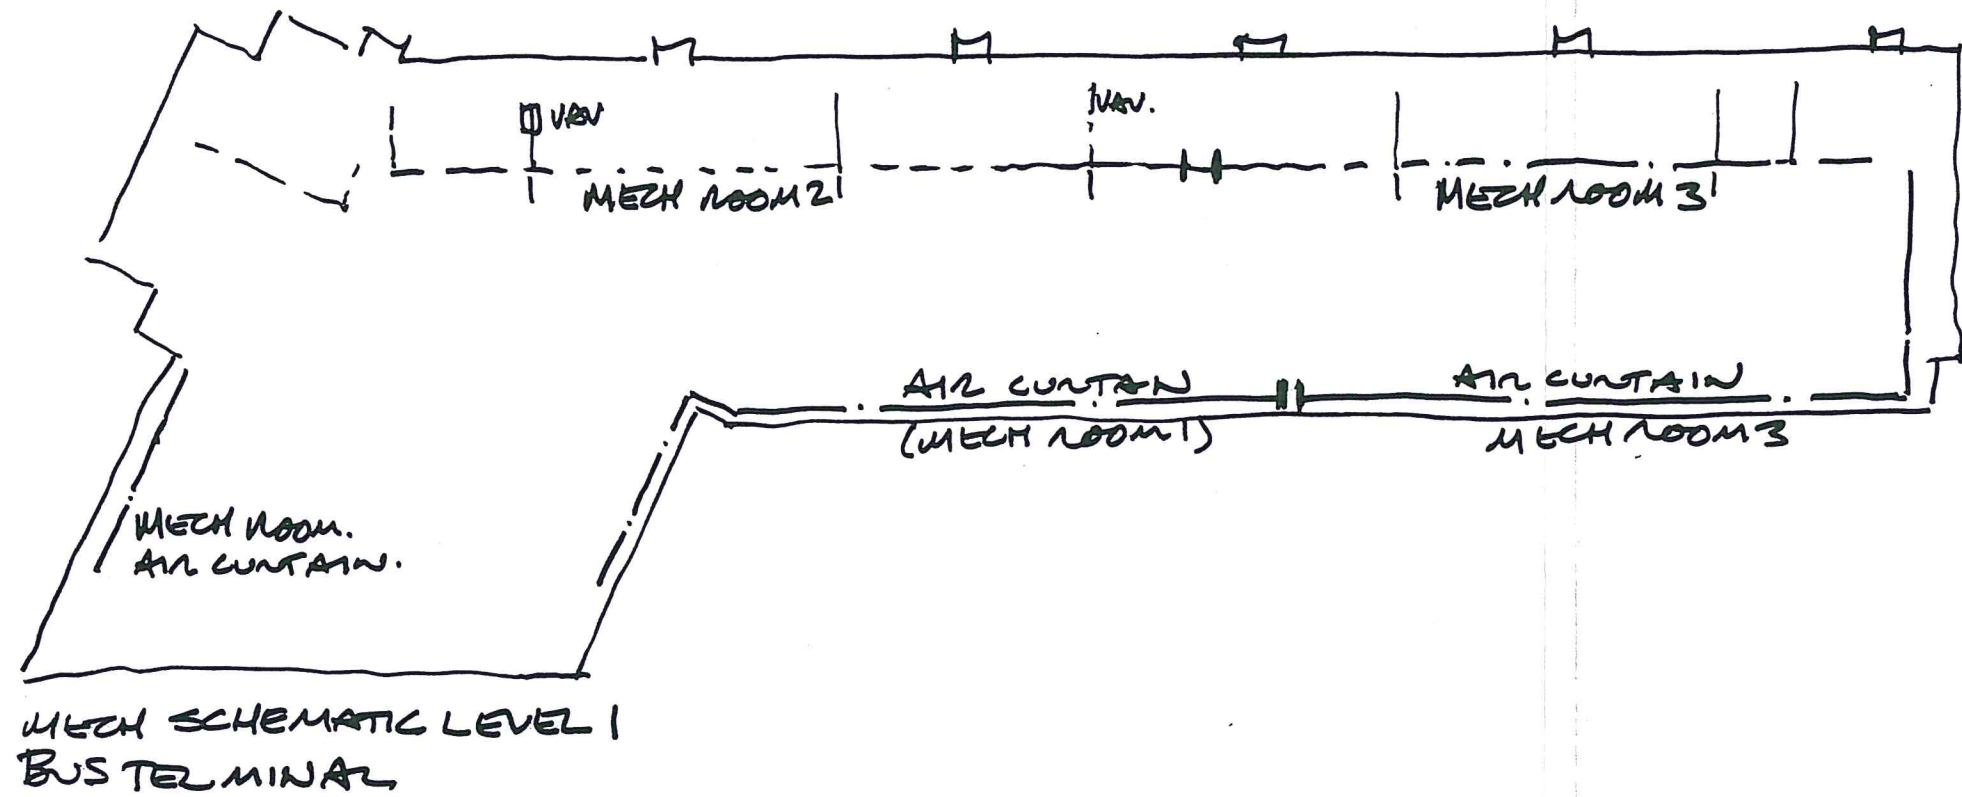 VAV
VAV.
MECH ROOM 2
MECH ROOM 3
AIR CURTAIN
AIR CURTAIN
(MECH ROOM 1)
MECH ROOM 3
MECH ROOM.
AIR CURTAIN.
MECH SCHEMATIC LEVEL 1
BUS TERMINAL